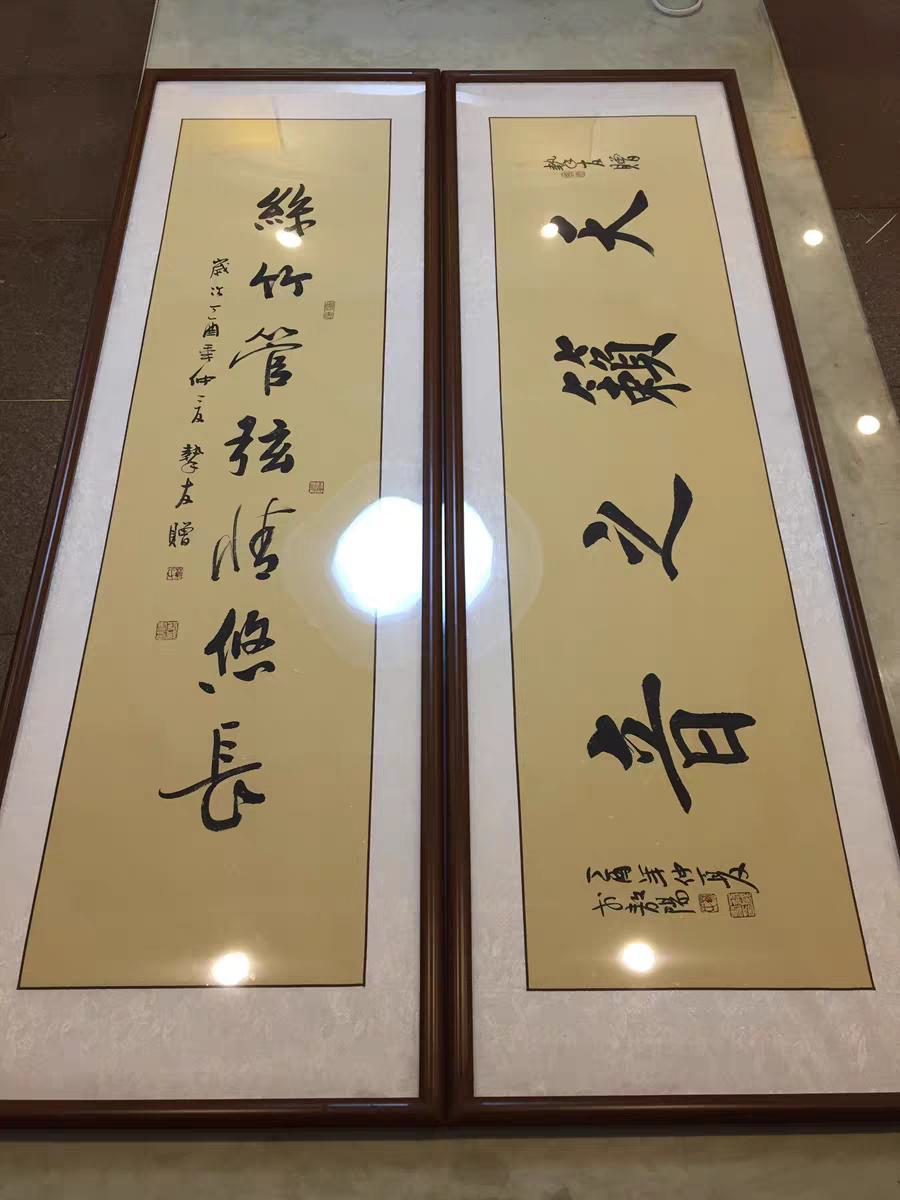 絲竹管弦情悠長
歲次丁酉年仲夏 摯友贈
摯友贈
天籟之音
丁酉年仲夏
於 陽